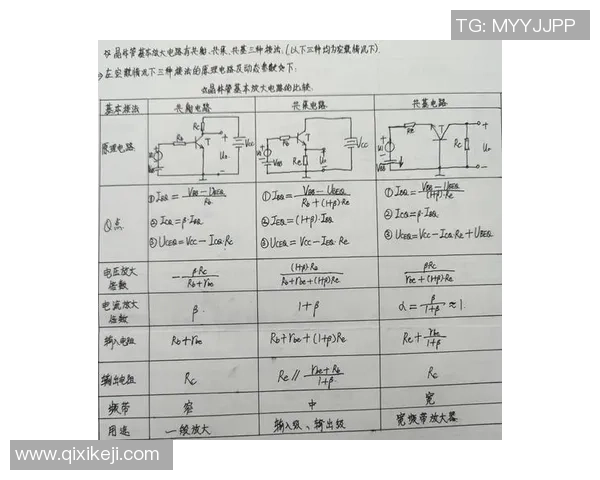 TG: MYYJJPP
☆晶体管基本放大电路有共射、共集、共基三种接法.(以下三种均为空载情况下).
→在空载情况下三种接法的原理电路及动态参数如下:
☆晶体管基本放大电路的比较.
基本接法 共射电路 共集电路 共基电路
原理电路
Rc Rb T + Vcc Ui VBB Uo -
Rb T Re VBB Uo Vcc
Re T + Rc Uo Ui VBB -
Q点
① IBQ = (VBB - UBEQ)/Rb ① IBQ = (VBB - UBEQ)/(Rb+(1+β)Re) ① IBQ = (VBB - UBEQ)/((1+β)Re)
② ICQ = β·IBQ ② IEQ = (1+β)·IBQ ② ICQ = β·IBQ
③ UCEQ = VCC - ICQ·Rc ③ UCEQ = VCC - IEQ·Re ③ UCEQ = VCC - ICQ·Rc + UBEQ
电压放大倍数 -βRc/(Rb+rbe) (1+β)Re/(Rb+rbe+(1+β)Re) βRc/(rbe+(1+β)Re)
电流放大倍数 β 1+β α = β/(1+β) ≈ 1.
输入电阻 Rb+rbe Rb+rbe+(1+β)Re Re + rbe/(1+β)
输出电阻 Rc Re // (rbe+Rb)/(1+β) Rc
频带 窄 中 宽
用途 一级放大 输入级、输出级 宽频带放大器
www.qixikeji.com